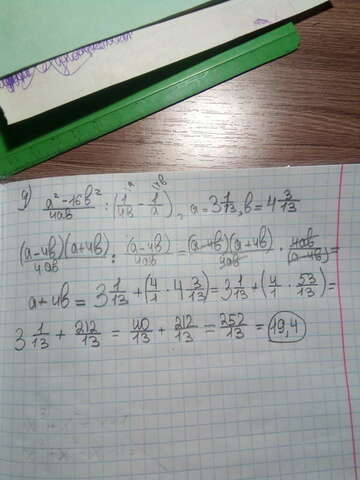 g) (a²-16b²)/(4ab) : (1/(4b) - 1/a), a = 3 1/13, b = 4 3/13
((a-4b)(a+4b))/(4ab) : (a-4b)/(4ab) = ((a-4b)(a+4b))/(4ab) · 4ab/(a-4b) =
a+4b = 3 1/13 + (4/1 · 4 3/13) = 3 1/13 + (4/1 · 53/13) =
3 1/13 + 212/13 = 40/13 + 212/13 = 252/13 = 19,4